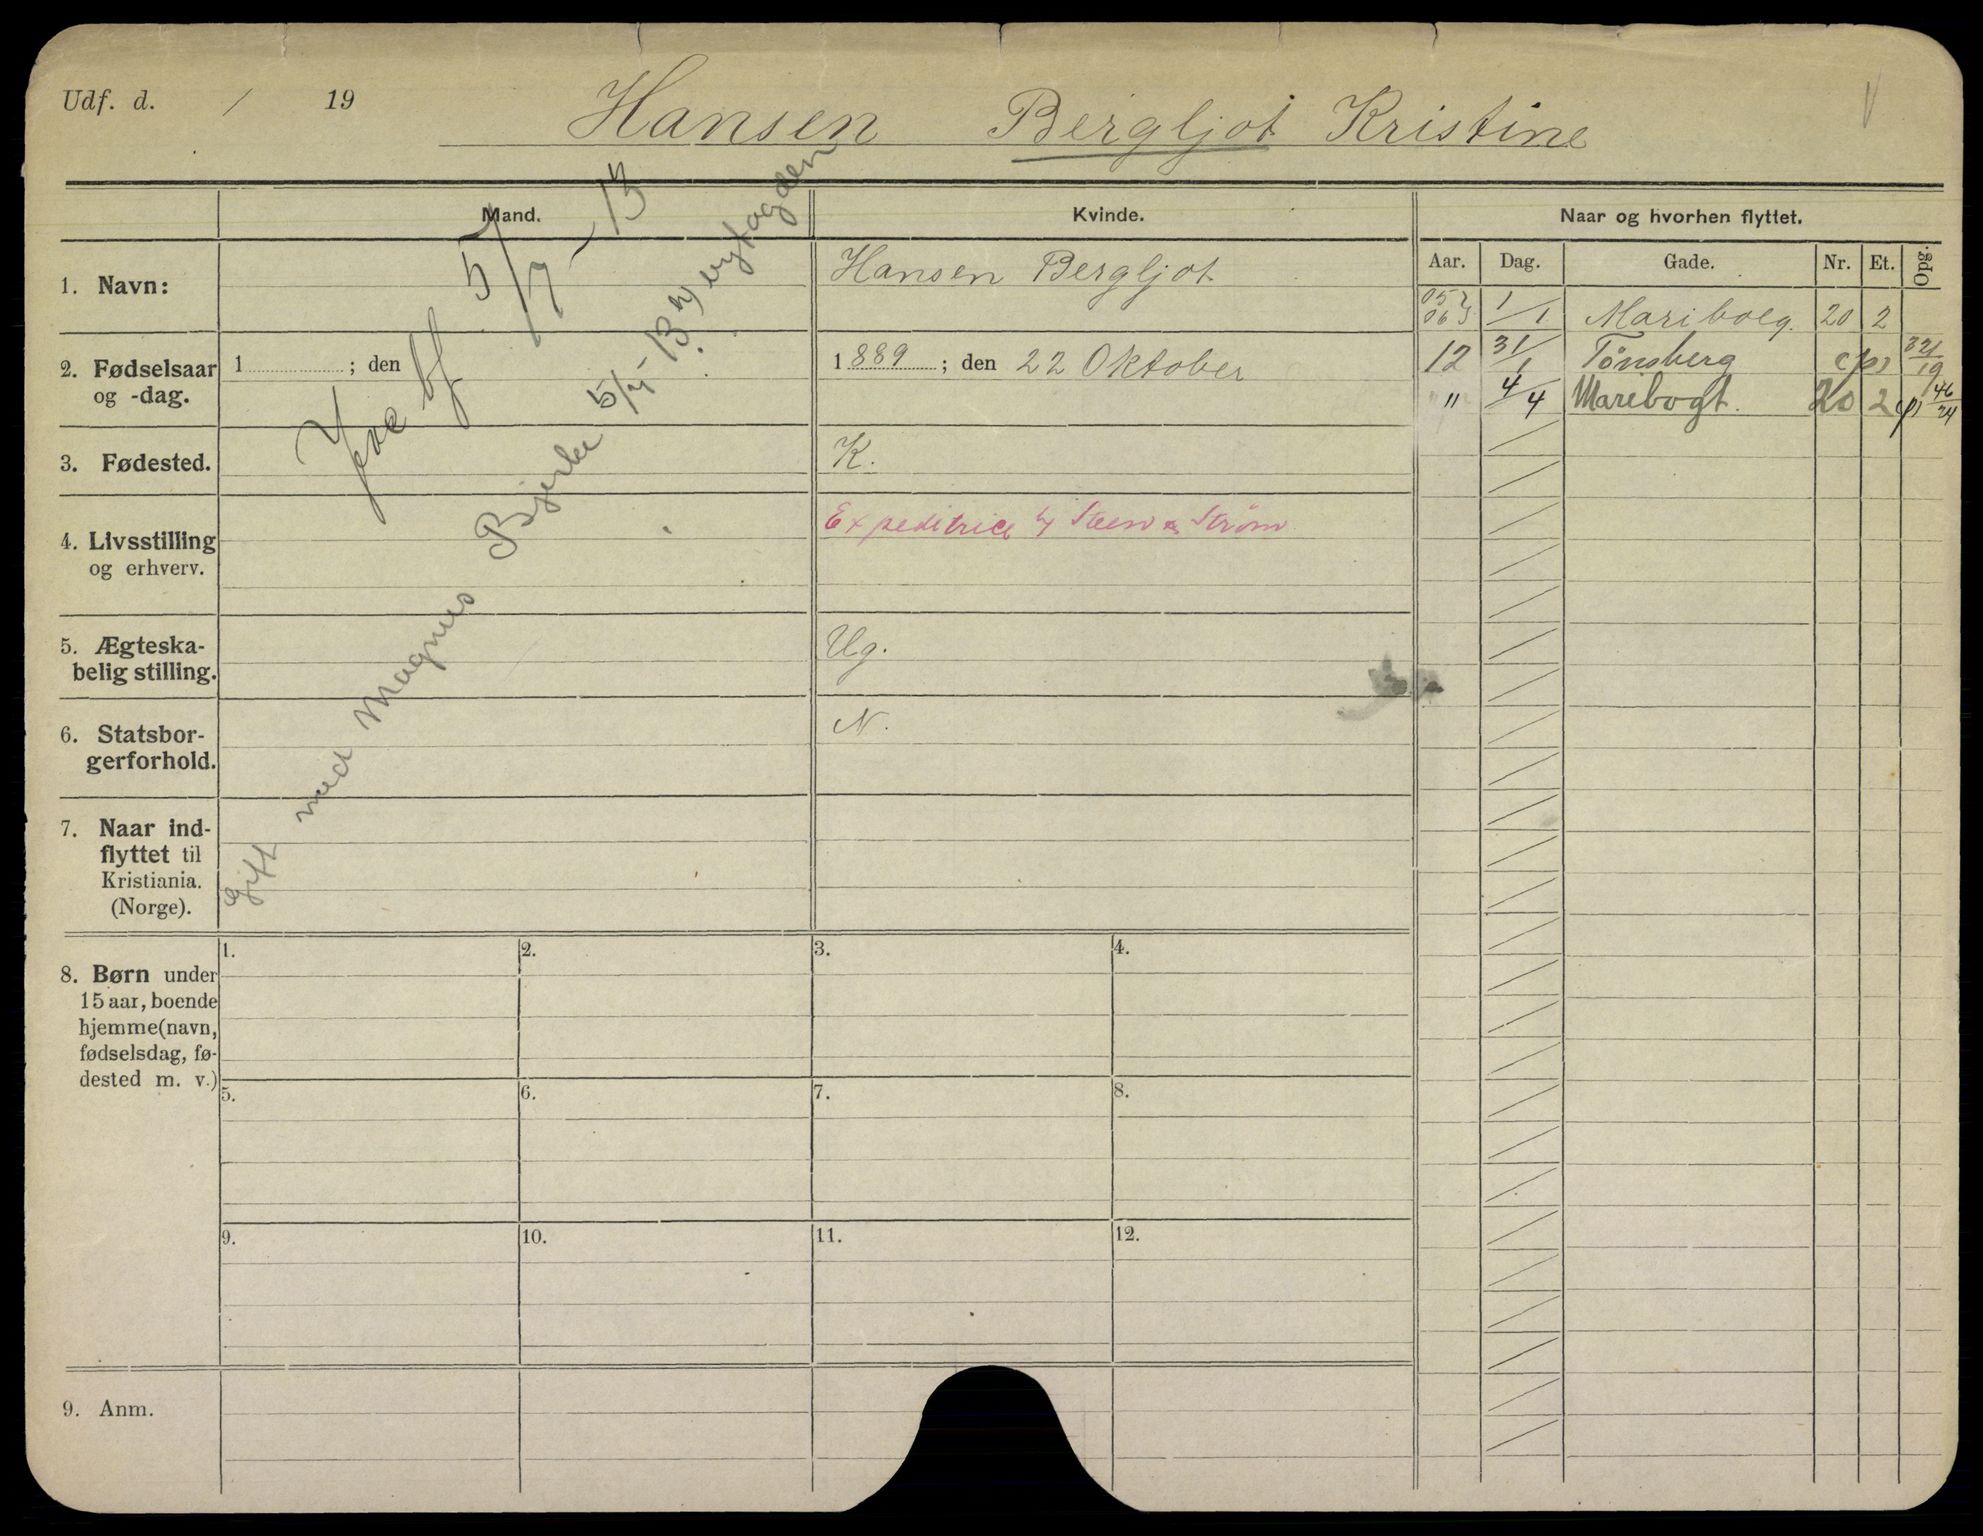 Udf. d. / 19
Hansen Bergljot Kristine
Mand.
Kvinde.
Naar og hvorhen flyttet.
Aar. Dag. Gade. Nr. Et. Opg.
1. Navn:
Hansen Bergljot
05 06 1/1 Mariboeg. 20 2
12 31/1 Tønsberg (p) 321/19
" 4/4 Maribogt. 20 2 (p) 46/74
2. Fødselsaar og -dag.
1 ; den
1889 ; den 22 Oktober
3. Fødested.
K.
4. Livsstilling og erhverv.
Expeditrice Steen & Strøm
5. Ægteska-
belig stilling.
Ug.
6. Statsbor-
gerforhold.
N.
7. Naar ind-
flyttet til
Kristiania.
(Norge).
5/7-13
Gift med Magnus Bjerke 5/7-13
8. Børn under
15 aar, boende
hjemme (navn,
fødselsdag, fø-
dested m. v.)
1. 2. 3. 4.
5. 6. 7. 8.
9. 10. 11. 12.
9. Anm.